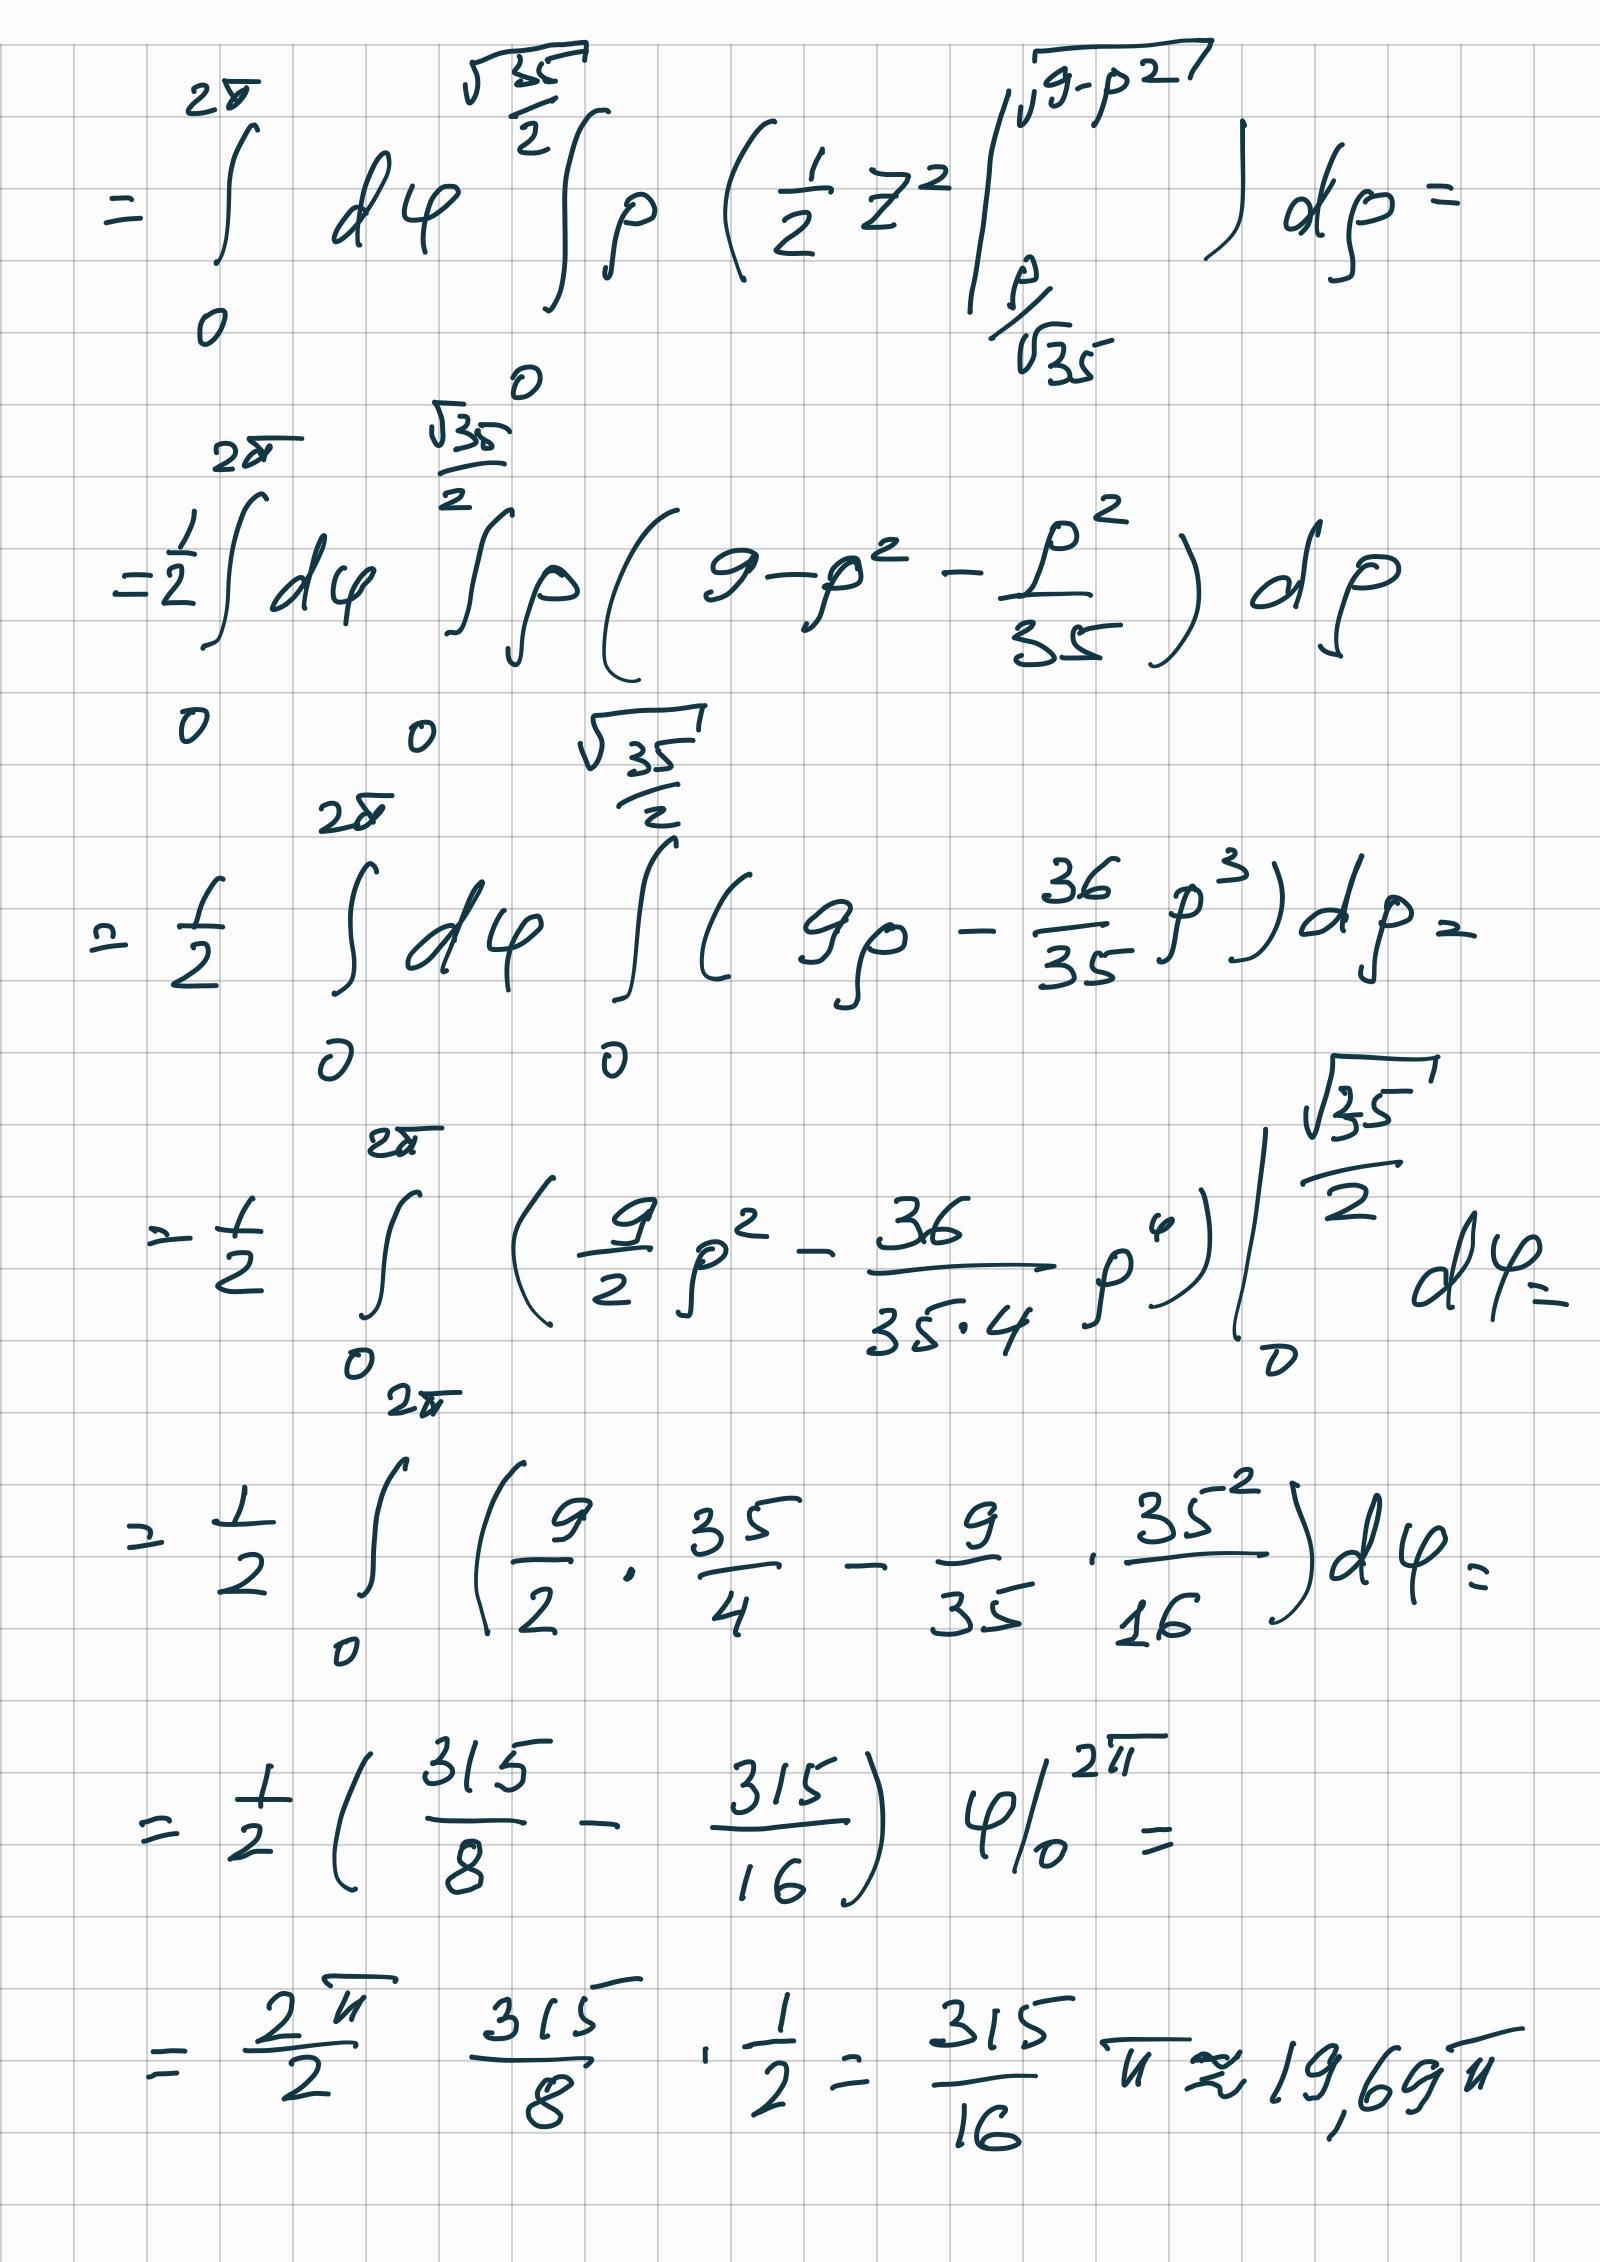 = ∫_0^{2π} dφ ∫_0^{√35/2} ρ (1/2 z² |_{ρ/√35}^{√(9-ρ²)}) dρ =
= 1/2 ∫_0^{2π} dφ ∫_0^{√35/2} ρ (9 - ρ² - ρ²/35) dρ
= 1/2 ∫_0^{2π} dφ ∫_0^{√35/2} (9ρ - 36/35 ρ³) dρ =
= 1/2 ∫_0^{2π} (9/2 ρ² - 36/(35·4) ρ⁴) |_0^{√35/2} dφ =
= 1/2 ∫_0^{2π} (9/2 · 35/4 - 9/35 · 35²/16) dφ =
= 1/2 (315/8 - 315/16) φ|_0^{2π} =
= 2π/2 315/8 · 1/2 = 315/16 π ≈ 19,69 π